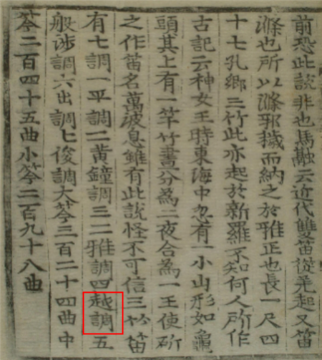 前恐此說非也馬融云近代雙笛從羌起又笛
滌也所以滌邪穢而納之於雅正也長一尺四
十七孔鄕三竹此亦起於新羅不知何人所作
古記云神文王時東海中忽有一小山形如龜
頭其上有一竿竹晝分爲二夜合爲一王使斫
之作笛名萬波息雖有此說怪不可信三竹笛
有七調一平調二黃鐘調三二雅調四越調五
般涉調六出調七俊調大笒三百二十四曲中
笒二百四十五曲小笒二百九十八曲